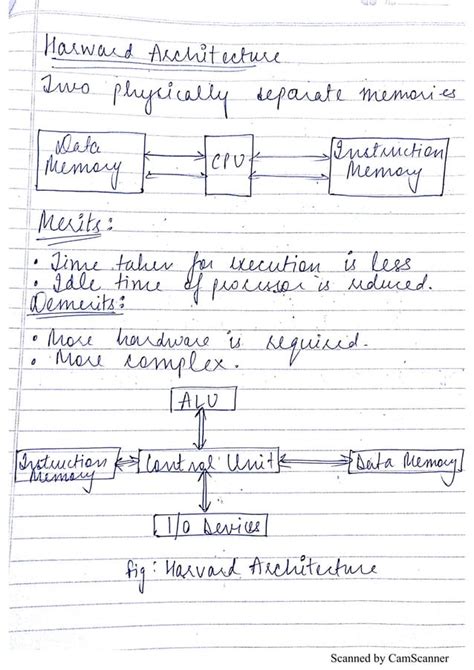 Harward Architecture
Two physically separate memories
Data Memory
CPU
Instruction Memory
Merits:
• Time taken for execution is less
• Idle time of processor is reduced.
Demerits:
• More hardware is required.
• More complex.
ALU
Instruction Memory
Control Unit
Data Memory
I/O Devices
fig: Harvard Architecture
Scanned by CamScanner